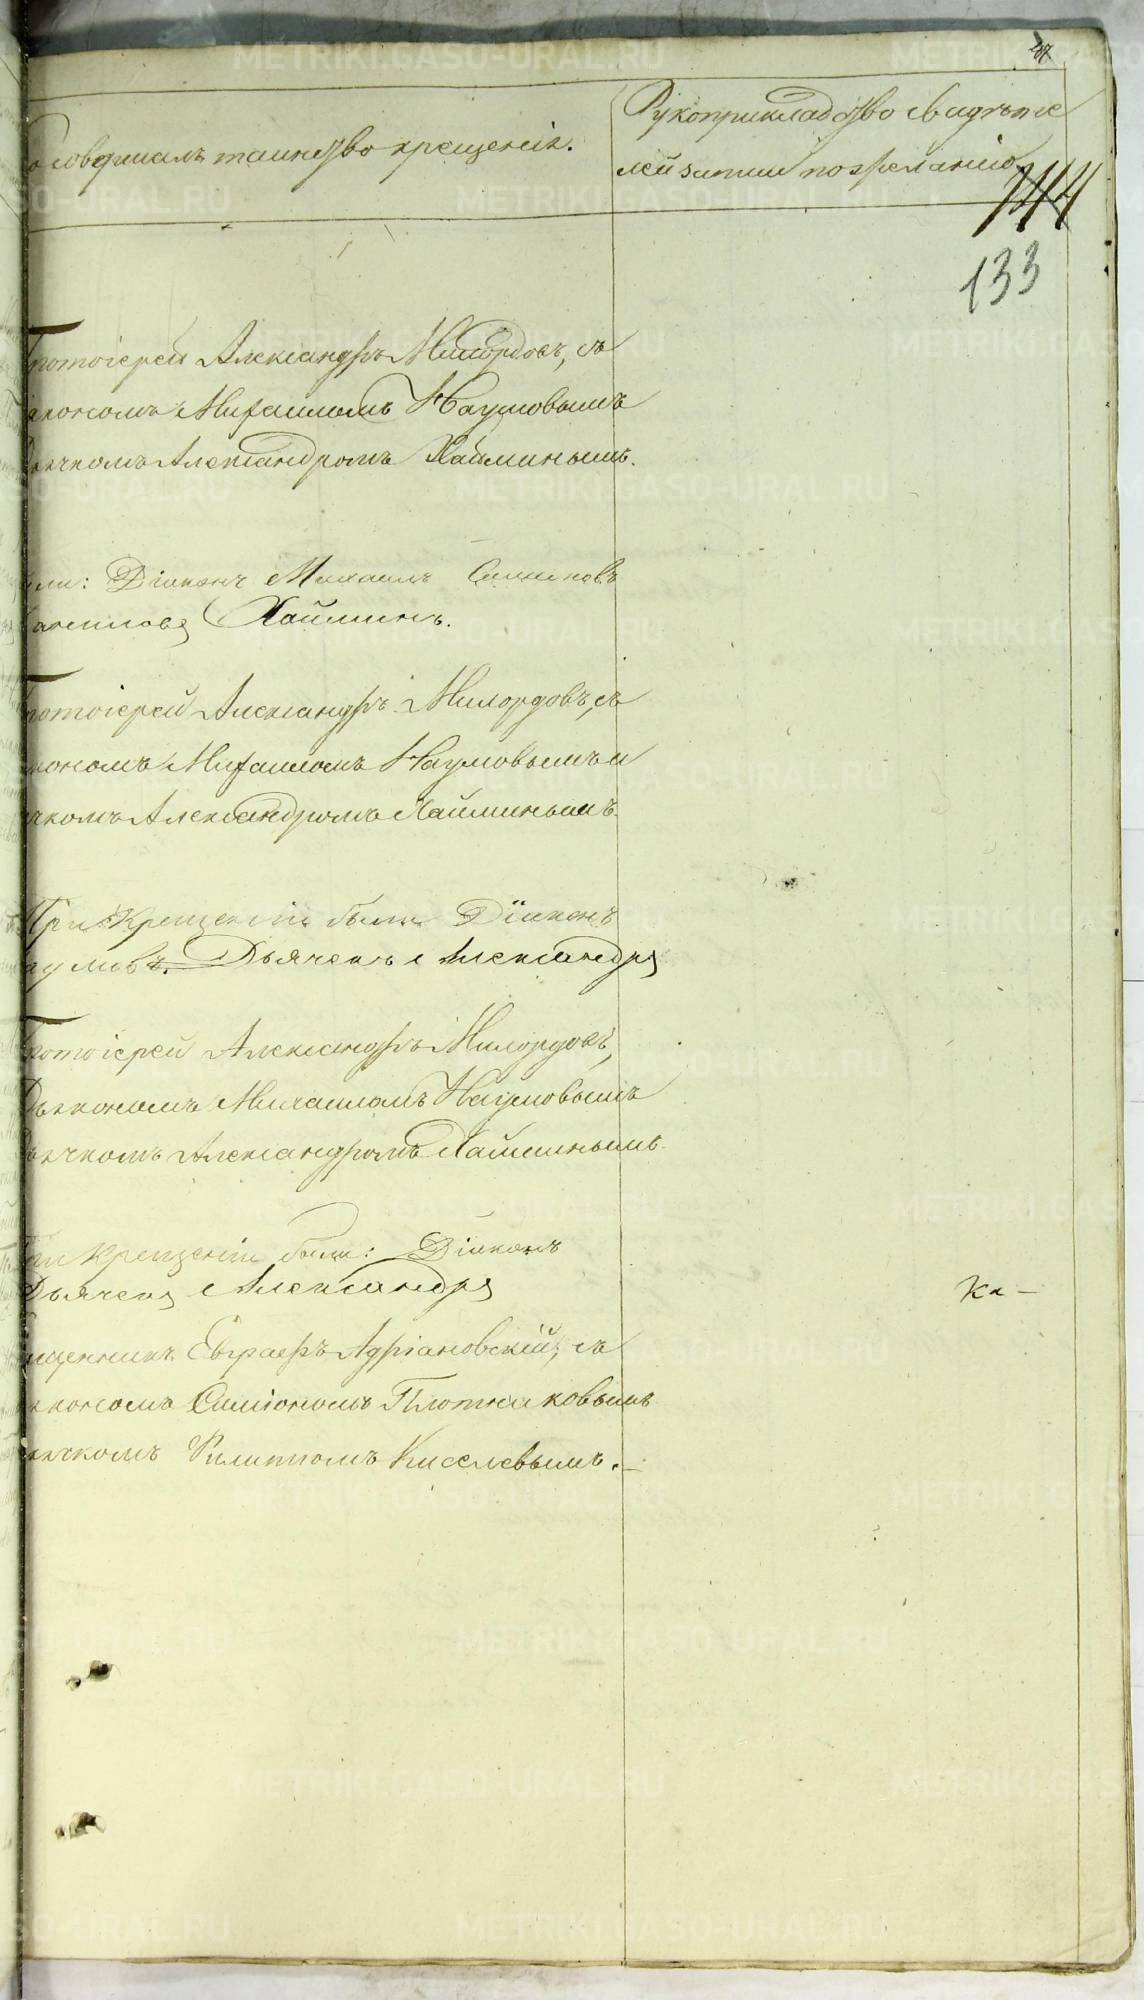 37
о совершалъ таинство крещенія.
Рукоприкладство свидѣте
лей записи по желанію
144
133
ротоіерей Александръ Милордовъ, съ
іакономъ Михаиломъ Наумовымъ
ячкомъ Александромъ Хайминымъ.
ыли: Діаконъ Михаилъ
Хайминъ.
ротоіерей Александръ Милордовъ, съ
кономъ Михаиломъ Наумовымъ и
чкомъ Александромъ Хайминымъ.
При Крещеніи были Діаконъ
аумовъ. Дьячекъ Александръ
ротоіерей Александръ Милордовъ,
Дьякономъ Михаиломъ Наумовымъ
ьячкомъ Александромъ Хайминымъ.
ри крещеніи были: Діаконъ
Дьячекъ Александръ
Ка —
ященникъ Евграфъ Адріановскій, съ
кономъ Симіономъ Плотниковымъ
ячкомъ Филиппомъ Киселевымъ. —
METRIKI.GASO-URAL.RU